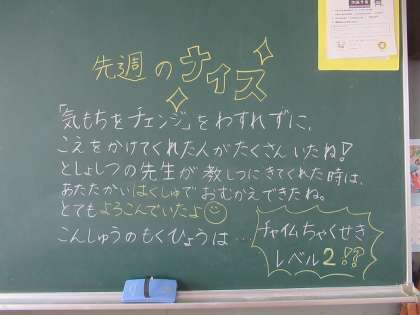 先週のナイス
「気もちをチェンジ」をわすれずに、
こえをかけてくれた人がたくさんいたね!
としょしつの先生が教しつにきてくれた時は、
あたたかいはくしゅでおむかえできたね。
とてもよろこんでいたよ
こんしゅうのもくひょうは…
チャイムちゃくせき
レベル2!?